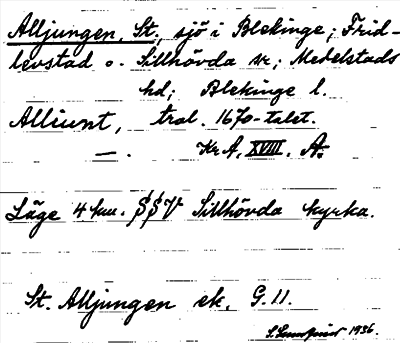 Alljungen, St. sjö i Blekinge; Frid-
levstad o. Sillhövda sr; Medelstads
hd; Blekinge l.
Alliunt, trol. 1670-talet.
—. KrA, XVIII. A:
Läge 4 km. SSV Sillhövda kyrka.
St. Alljungen ek. G. 11.
1936.